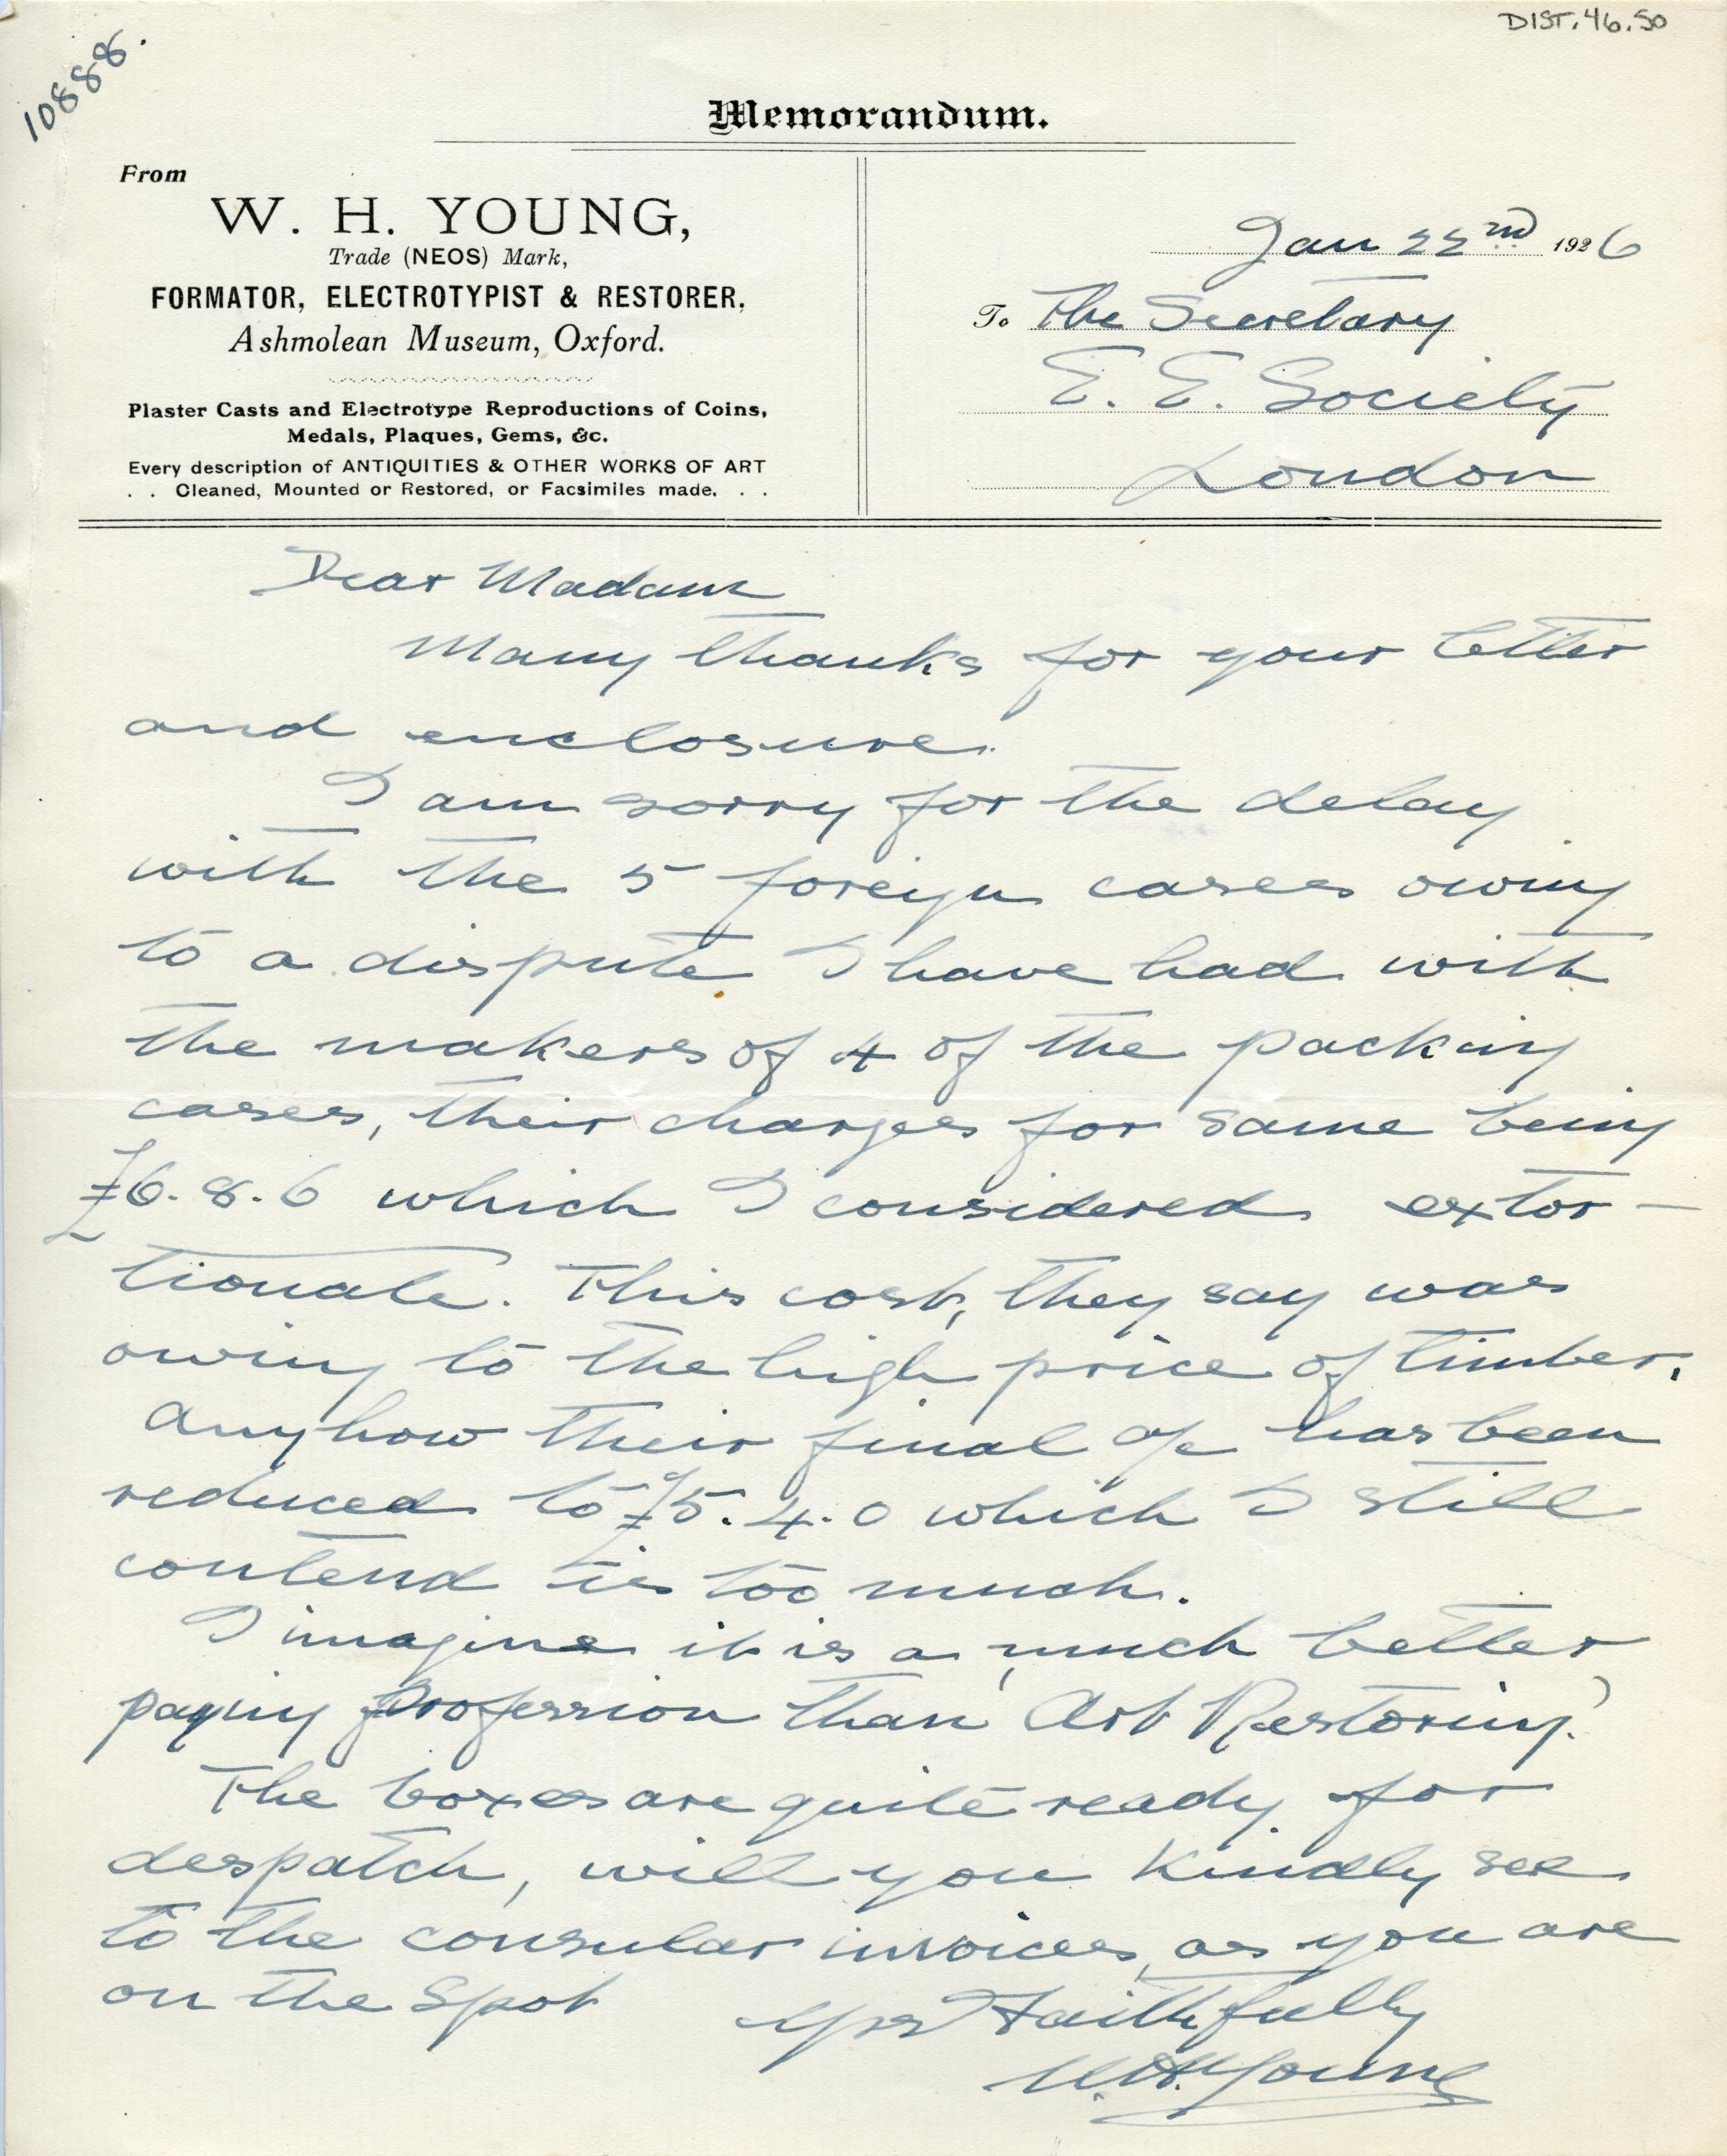 DIST.46.50
10888.
Memorandum.
From
W. H. YOUNG,
Trade (NEOS) Mark,
FORMATOR, ELECTROTYPIST & RESTORER,
Ashmolean Museum, Oxford.
Plaster Casts and Electrotype Reproductions of Coins,
Medals, Plaques, Gems, &c.
Every description of ANTIQUITIES & OTHER WORKS OF ART
. . Cleaned, Mounted or Restored, or Facsimiles made. . .
Jan 22nd 1926
To The Secretary
E. E. Society
London
Dear Madam
Many thanks for your letter
and enclosure.
I am sorry for the delay
with the 5 foreign cases owing
to a dispute I have had with
the makers of 4 of the packing
cases, their charges for same being
£6.8.6 which I considered extor-
tionate. This cost, they say was
owing to the high price of timber.
Anyhow their final a/c has been
reduced to £5.4.0 which I still
contend is too much.
I imagine it is a much better
paying profession than 'Art Restoring'.
The boxes are quite ready for
despatch, will you kindly see
to the consular invoices, as you are
on the spot
Yrs Faithfully
W.H. Young